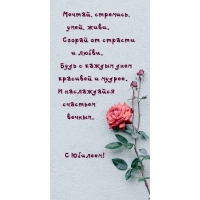 Мечтай, стремись,
умей, живи.
Сгорай от страсти
и любви.
Будь с каждым днем
красивей и мудрее.
И наслаждайся
счастьем
вечным.
С Юбилеем!